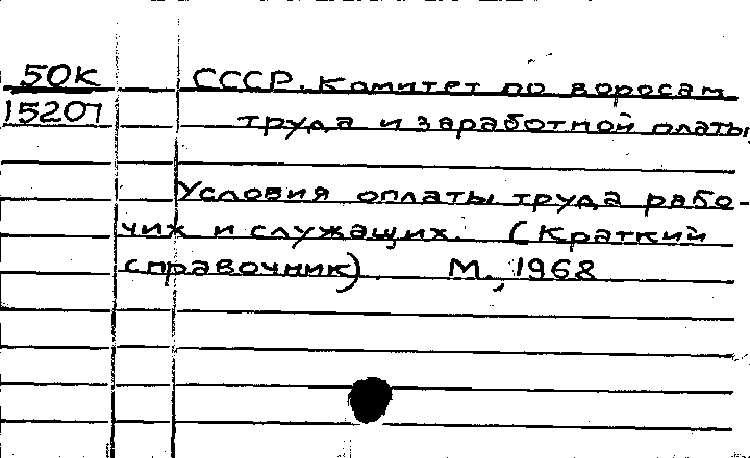 50К СССР. Комитет по воросам
15207 труда и заработной платы,
Условия оплаты труда рабо-
чих и служащих. (Краткий
справочник). М., 1968